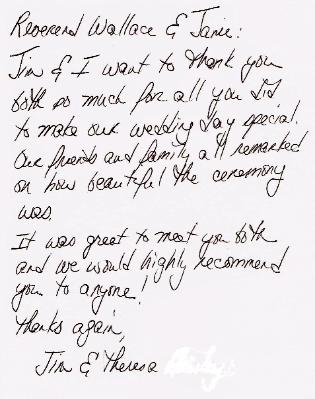 Reverend Wallace & Janie:
Jim & I want to thank you
both so much for all you did
to make our wedding day special.
Our friends and family all remarked
on how beautiful the ceremony
was.
It was great to meet you both
and we would highly recommend
you to anyone!
Thanks again,
Jim & Theresa